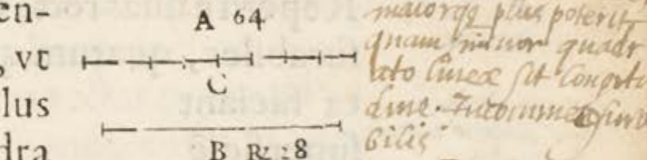 en-
A 64
, vt
C
lus
dra
B R 28
maiorq3 plus poterit
quam minor quadr
ato lineæ sit longitu
dine. Incommensura
bilis